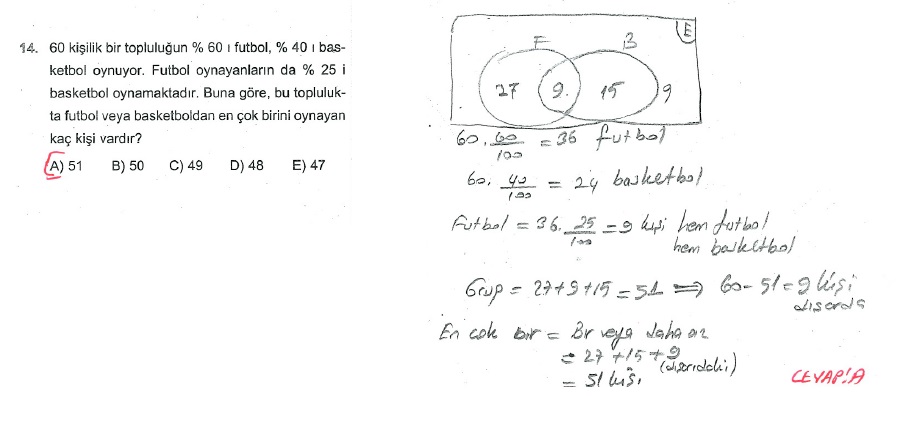 14. 60 kişilik bir topluluğun % 60 ı futbol, % 40 ı bas-
ketbol oynuyor. Futbol oynayanların da % 25 i
basketbol oynamaktadır. Buna göre, bu topluluk-
ta futbol veya basketboldan en çok birini oynayan
kaç kişi vardır?
A) 51 B) 50 C) 49 D) 48 E) 47
E
F B
27 9. 15 9
60. 60/100 = 36 futbol
60. 40/100 = 24 basketbol
Futbol = 36. 25/100 = 9 kişi hem futbol
hem basketbol
Grup = 27+9+15 = 51 ⇒ 60- 51 = 9 kişi
dışarda
En çok bir = Bir veya daha az
= 27 + 15 + 9
(dışarıdaki)
= 51 kişi
CEVAP:A